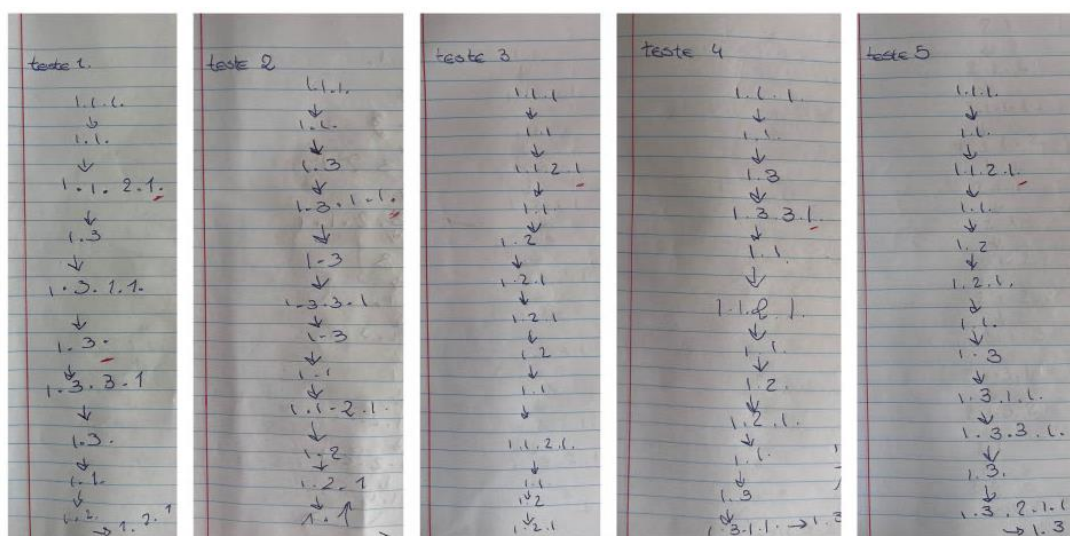 teste 1.
1.1.1.
↓
1.1.
↓
1.1.2.1.
↓
1.3
↓
1.3.1.1.
↓
1.3.
↓
1.3.3.1
↓
1.3.
↓
1.1.
↓
1.2.
→ 1.2.1
teste 2
1.1.1.
↓
1.1.
↓
1.3
↓
1.3.1.1.
↓
1.3
↓
1.3.3.1
↓
1.3
↓
1.1
↓
1.1.2.1.
↓
1.2
↓
1.2.1
↓
1.1
teste 3
1.1.1
↓
1.1
↓
1.1.2.1
↓
1.1
↓
1.2
↓
1.2.1
↓
1.2.1
↓
1.2
↓
1.1
↓
1.1.2.1.
↓
1.1
↓
1.2
↓
1.2.1
teste 4
1.1.1
↓
1.1.
↓
1.3
↓
1.3.3.1.
↓
1.1.
↓
1.1.2.1.
↓
1.1.
↓
1.2.
↓
1.2.1.
↓
1.1.
↓
1.3
↓
1.3.1.1. → 1.3
teste 5
1.1.1.
↓
1.1.
↓
1.1.2.1.
↓
1.1.
↓
1.2
↓
1.2.1.
↓
1.1.
↓
1.3
↓
1.3.1.1.
↓
1.3.3.1.
↓
1.3.
↓
1.3.2.1.1
→ 1.3